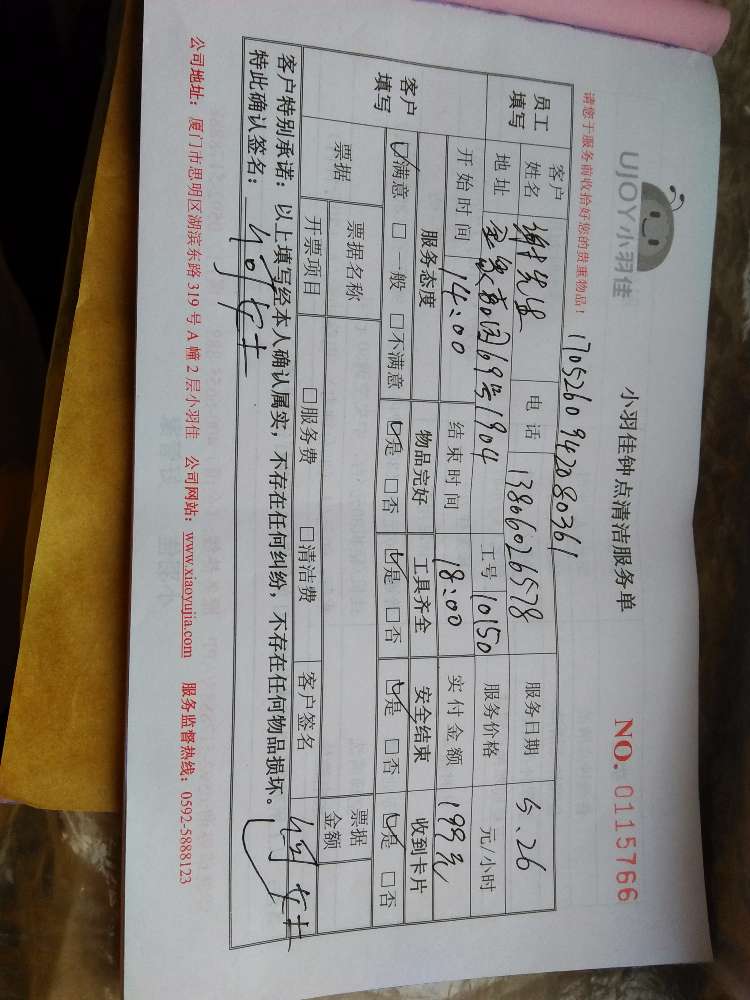 UJOY小羽佳
小羽佳钟点清洁服务单
NO. 0115766
请您于服务前收拾好您的贵重物品！
1705260942080361
员工填写 客户姓名 谢先生 电话 13806026578 服务日期 5.26
地址 69号1904 工号 10150 服务价格 元/小时
开始时间 14:00 结束时间 18:00 实付金额 199元
客户填写 服务态度 物品完好 工具齐全 安全结束 收到卡片
☑满意 □一般 □不满意 ☑是 □否 ☑是 □否 ☑是 □否 ☑是 □否
票据 票据名称 票据金额
开票项目 □服务费 □清洁费 客户签名 何女士
客户特别承诺：以上填写经本人确认属实，不存在任何纠纷，不存在任何物品损坏。
特此确认签名：何女士
公司地址：厦门市思明区湖滨东路319号A幢2层小羽佳 公司网站：www.xiaoyujia.com 服务监督热线：0592-5888123